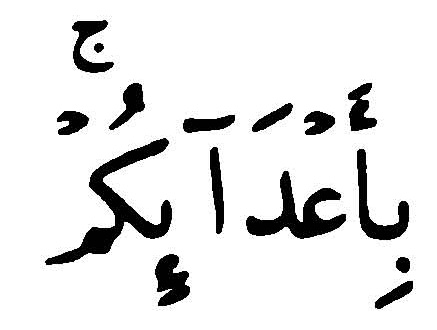 بِأَعۡدَآئِكُمۡۚ